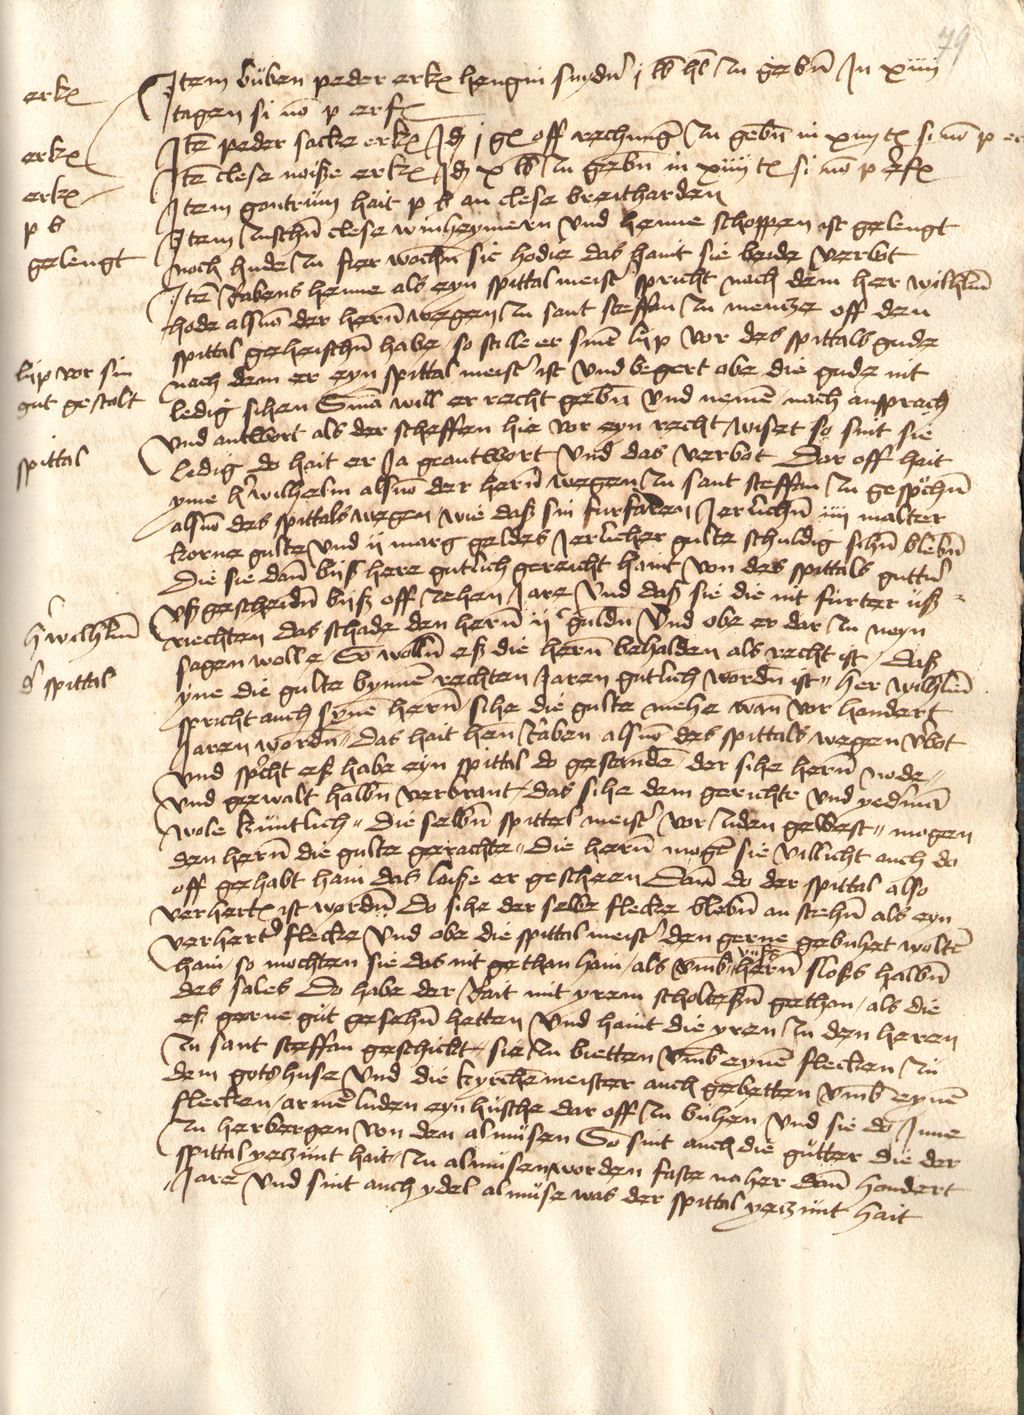 79
erk
Jtem buben peder erk hengin snydn j lb hl zu gebn in xiiii
tagen si no p erf
erk
Jte peder sacke erk Jd j gl off rechnug zu gebn in xiiij t si no p er
erk
Jte clese noiße erk Jd x lb zu gebn in xiiij t si no p erf
p b
Jtem gontrum hait p b an clese breitharden
gelengt
Jtem zuschn clese winheymern und henne schoppen ist gelengt
noch hude zu fier wochn sie hodie das haint sie beide verbot
Jte Rabens henne als eyn spittalmeist spricht nach dem her wilhelm
hode alßuo der hern wegen zu sant steffan zu mencze off den
spittal geheischn habe so stille er sine lyp vor des spittals gude
lyp vor sin
gut gestalt
nach dem er eyn spittal meist ist und begert obe die gude nit
ledig sihen Sma will er recht gebn und neme nach ansprach
und antwort als der scheffen hie vor eyn recht wiset so sint sie
spittal
ledig do hait er Ja geantwort und das verbot Dar off hait
yme h wilhelm alßuo der hern wegen zu sant steffan zu gespchn
alßuo des spittals wegen wie daß sin furfaren Jerlichn iiij malter
korne gulte und ij marg geldes Jerlicher gulte schuldig sihn blebn
Die sie dan biß here gutlich gereicht haint von des spittals guttn
uß gescheidn biß off zehen Jare und daß sie die nit furter uß
h wilhelm
riechten das schade den hern ij c guldn und obe er dar zu neyn
sagen wolle So wolln eß die hern behalden als recht ist daß
d spittal
yne die gulte bynne rechten Jaren gutlich wordn ist her wilhelm
spricht auch syne hern sihe die gulte mehe wan vor hondert
Jaren wordn Das hait hen Raben alßuo des spittals wegen vbot
und spcht eß habe eyn spittal do gestande der sihe hern node
und gewalt halbn verbrant das sihe dem gerichte und yederma
wole kuntlich Die selbn spittel meist vor ziden gewest mogen
den hern die gulte gerachte Die hern moge sie villicht auch do
off gehabt hain das laiße er gescheen Dan do der spittal also
verhert ist wordn Do sihe der selbe flecke blebn an stehn als eyn
verhert flecke und obe die spittal meist den gerne gebuhet wolte
hain so mochten sie das nit gethan hain als umb hern sloß halbn
des sales Do habe der Rait mit yrem scholteßn gethan als die
eß gerne gut gesehn hetten und haint die yren zu den heren
zu sant steffan geschickt sie zu bietten umb eyne flecken zu
dem gotshuse und die kyrchemeister auch gebetten umb eyne
flecken arme luden eyn husche dar off zu buhen und sie do Jnne
zu herbergen von den almusen So sint auch die gutter die der
spittal yeczunt hait zu almusen worden faste naher dan hondert
Jare und sint auch ydel almuse was der spittal yeczunt hait